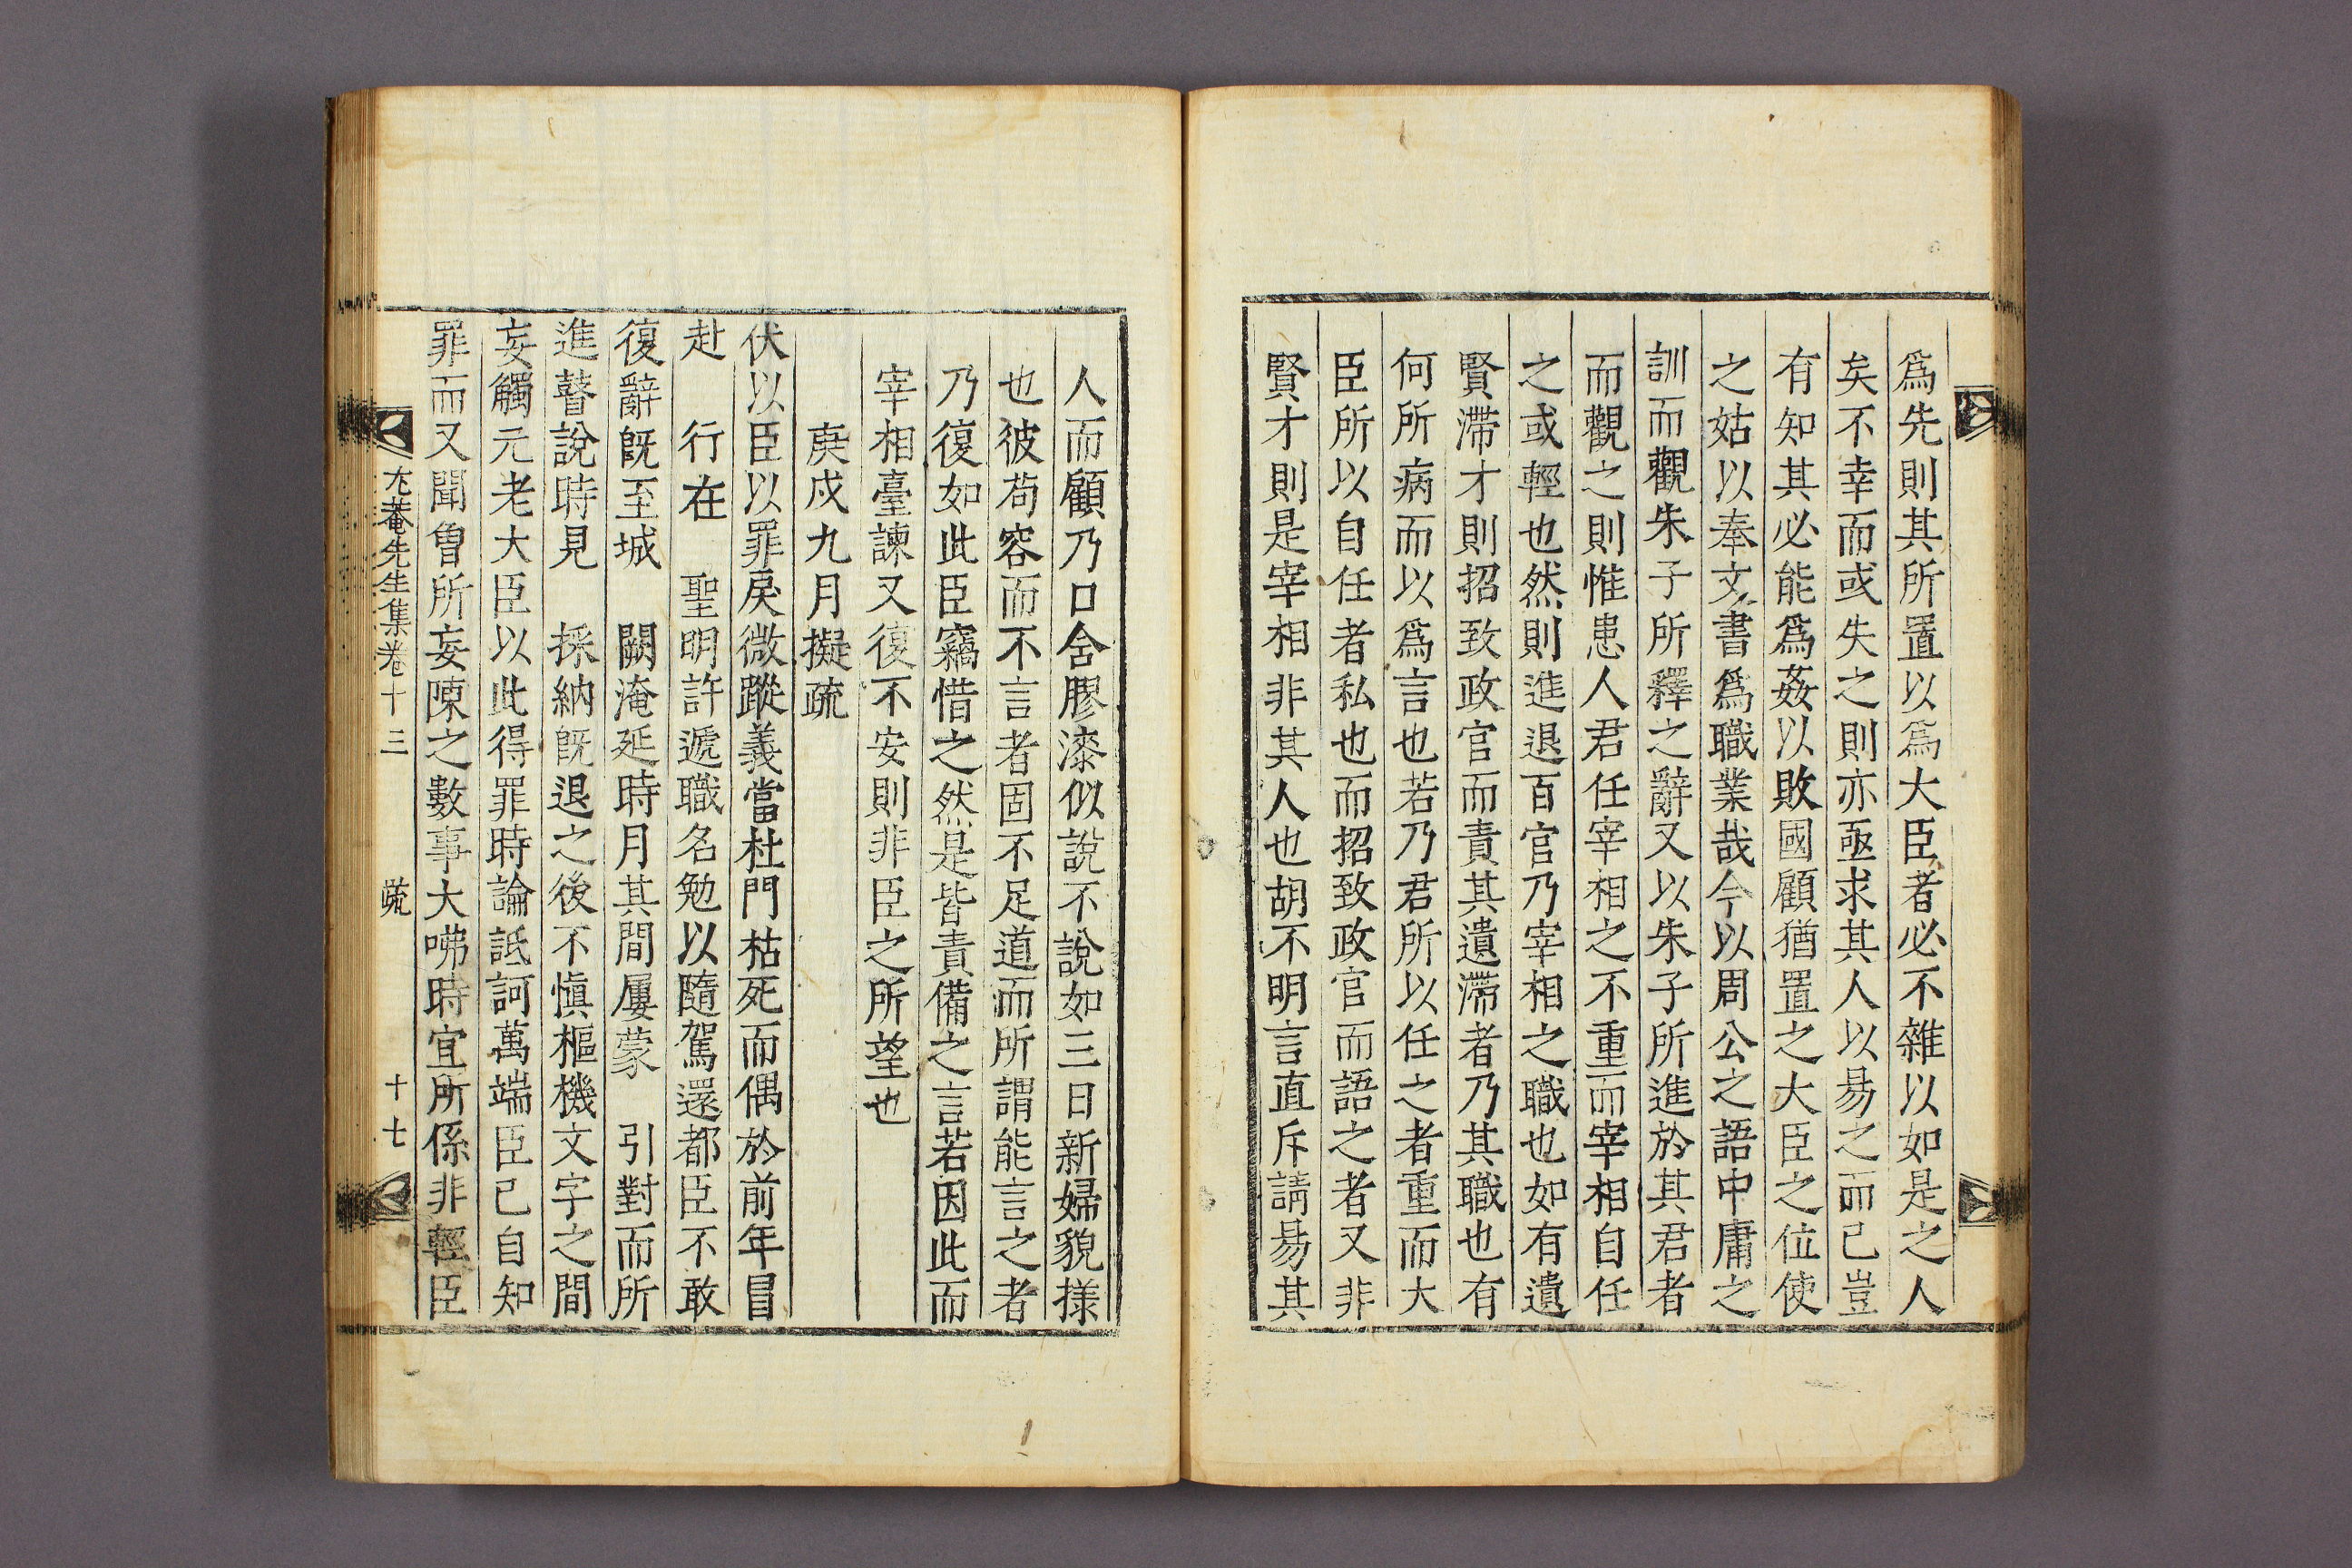 爲先則其所置以爲大臣者必不雜以如是之人
矣不幸而或失之則亦亟求其人以昜之而已豈
有知其必能爲姦以敗國顧猶置之大臣之位使
之姑以奉文書爲職業哉今以周公之語中庸之
訓而觀朱子所釋之辭又以朱子所進於其君者
而觀之則惟患人君任宰相之不重而宰相自任
之或輕也然則進退百官乃宰相之職也如有遺
賢滯才則招致政官而責其遺滯者乃其職也有
何所病而以爲言也若乃君所以任之者重而大
臣所以自任者私也而招致政官而語之者又非
賢才則是宰相非其人也胡不明言直斥請昜其
人而顧乃口舍膠漆似說不說如三日新婦貌樣
也彼苟容而不言者固不足道而所謂能言之者
乃復如此臣竊惜之然是皆責備之言若因此而
宰相臺諫又復不安則非臣之所望也
庚戌九月擬疏
伏以臣以罪戾微蹤義當杜門枯死而偶於前年冒
赴 行在 聖明許遞職名勉以隨駕還都臣不敢
復辭旣至城 闕淹延時月其間屢蒙 引對而所
進瞽說時見 採納旣退之後不愼樞機文字之間
妄觸元老大臣以此得罪時論詆訶萬端臣已自知
罪而又聞曾所妄陳之數事大咈時宜所係非輕臣
尤菴先生集卷十三 疏 十七